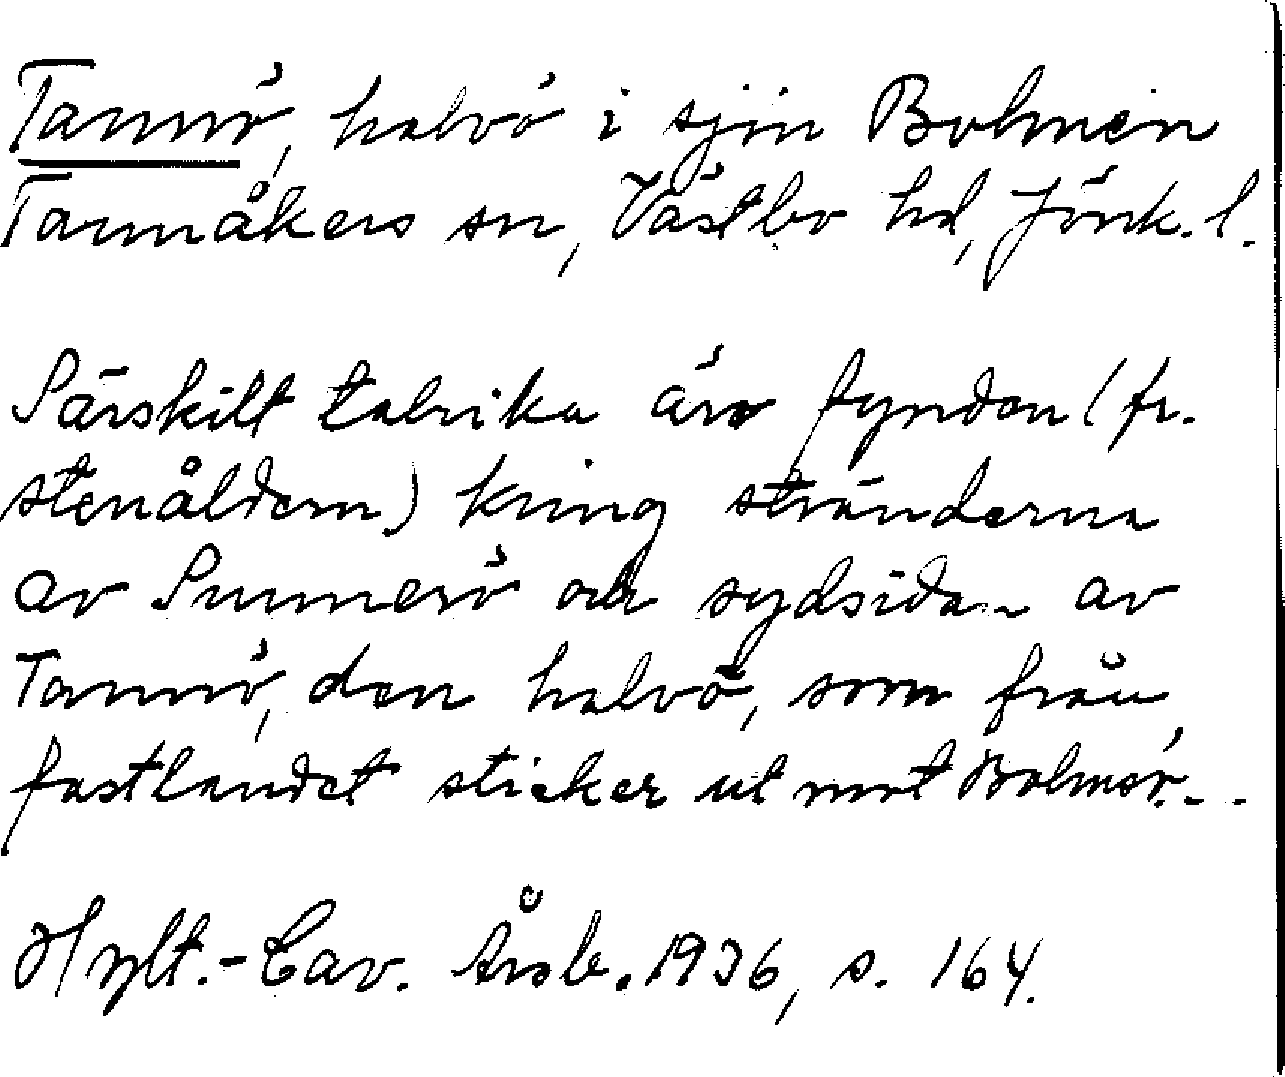 Tannö, halvö i sjön Bolmen
Tannåkers sn, Västbo hd, Jönk. l.
Särskilt talrika äro fynden (fr.
stenåldern) kring stränderna
av Sunnerö och sydsidan av
Tannö, den halvö, som från
fastlandet sticker ut mot Bolmsö...
Hylt.-Cav. Årsb. 1936, s. 164.